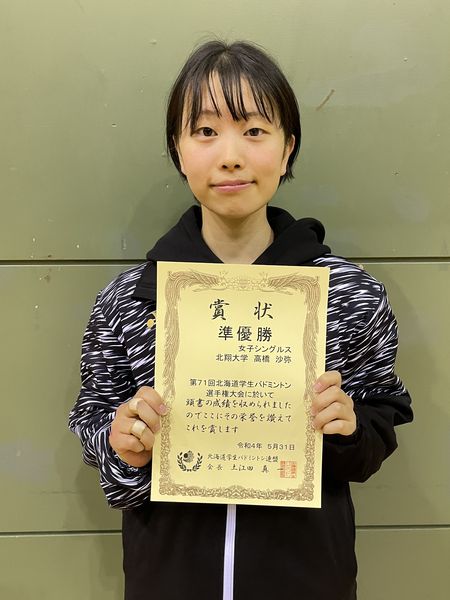 賞状
準優勝
女子シングルス
北翔大学 高橋 沙弥
第71回北海道学生バドミントン
選手権大会に於いて
頭書の成績を収められました
のでここにその栄誉を讃えて
これを賞します
令和4年 5月31日
北海道学生バドミントン連盟
会長 土江田 真